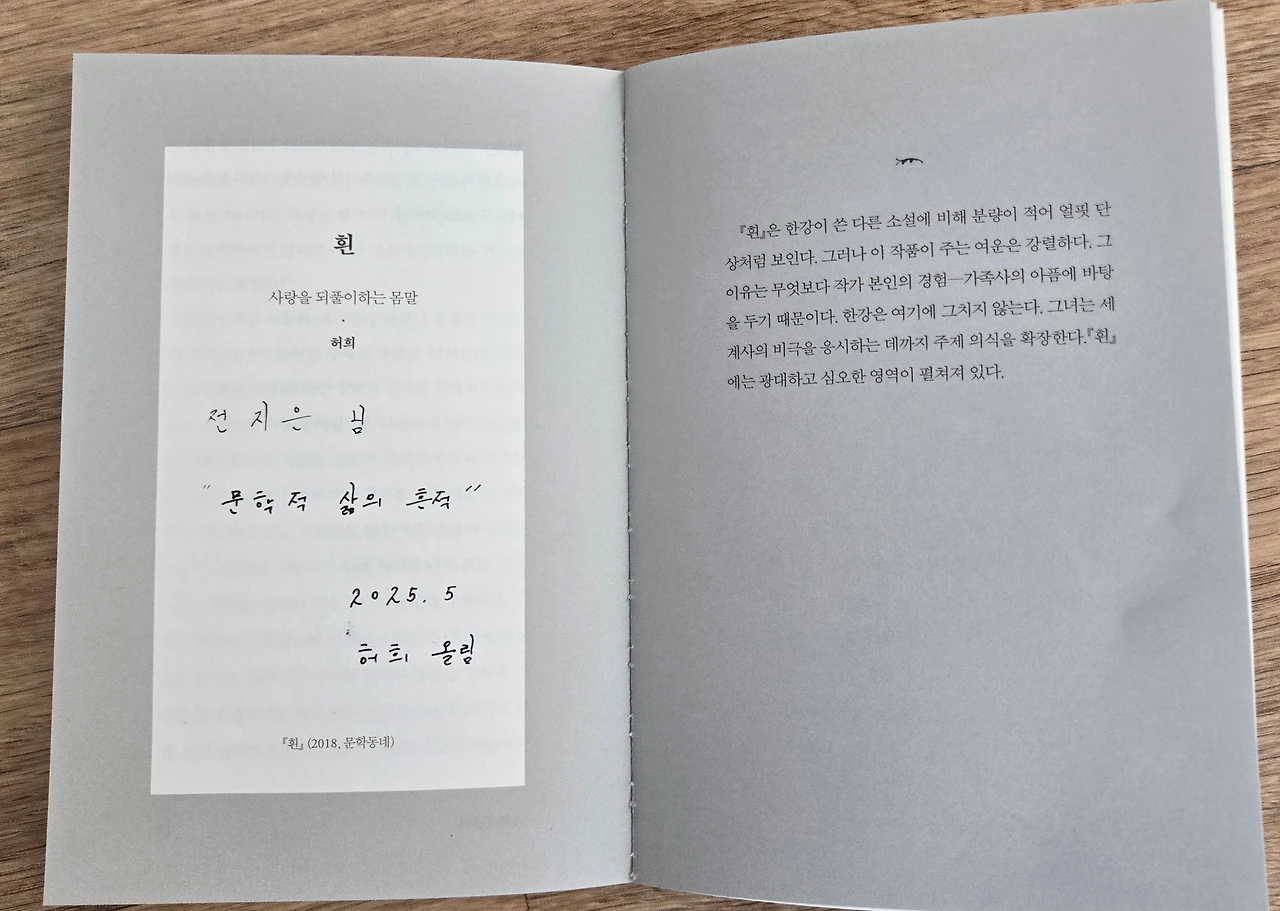 흰
사랑을 되풀이하는 몸말
·
허희
전지은 님
"문학적 삶의 흔적"
2025. 5
허희 올림
『흰』(2018, 문학동네)
『흰』은 한강이 쓴 다른 소설에 비해 분량이 적어 얼핏 단
상처럼 보인다. 그러나 이 작품이 주는 여운은 강렬하다. 그
이유는 무엇보다 작가 본인의 경험—가족사의 아픔에 바탕
을 두기 때문이다. 한강은 여기에 그치지 않는다. 그녀는 세
계사의 비극을 응시하는 데까지 주제 의식을 확장한다.『흰』
에는 광대하고 심오한 영역이 펼쳐져 있다.